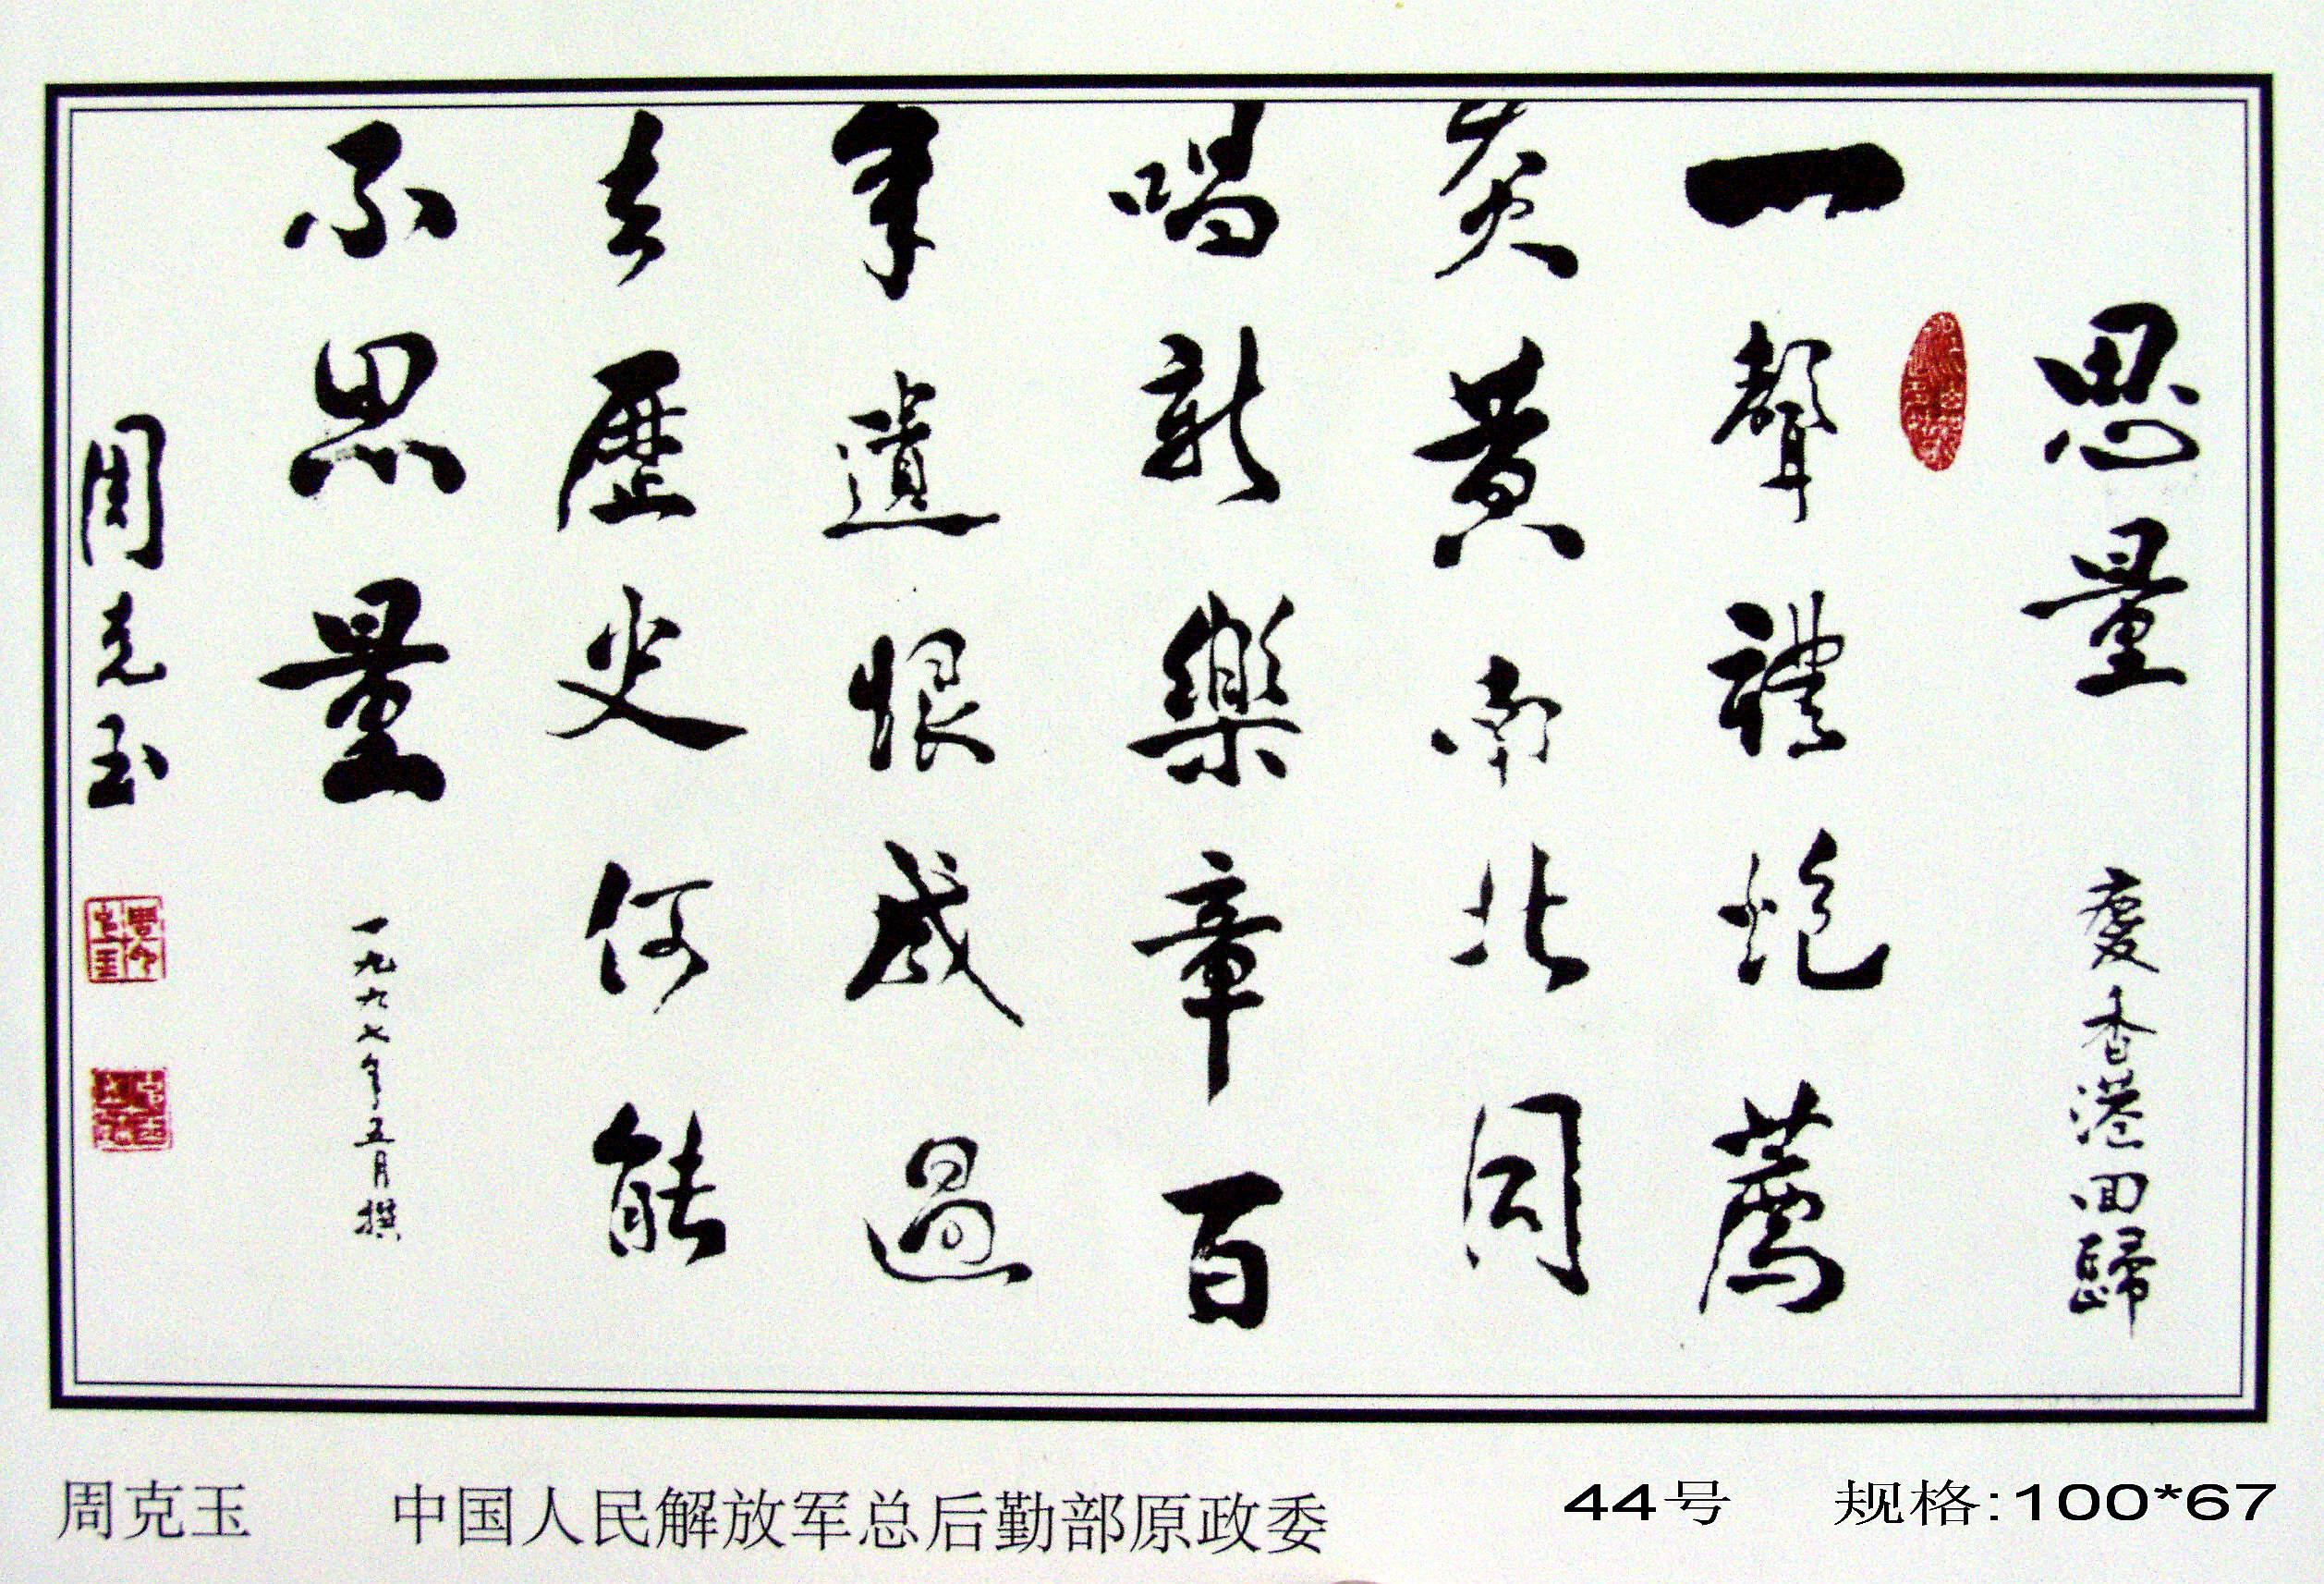 思量 慶香港回歸
一聲禮炮薦
炎黄南北同
唱新樂章百
年遺恨成過
去歷史何能
不思量 一九九七年五月撰
周克玉
周克玉 中国人民解放军总后勤部原政委 44号 规格:100*67